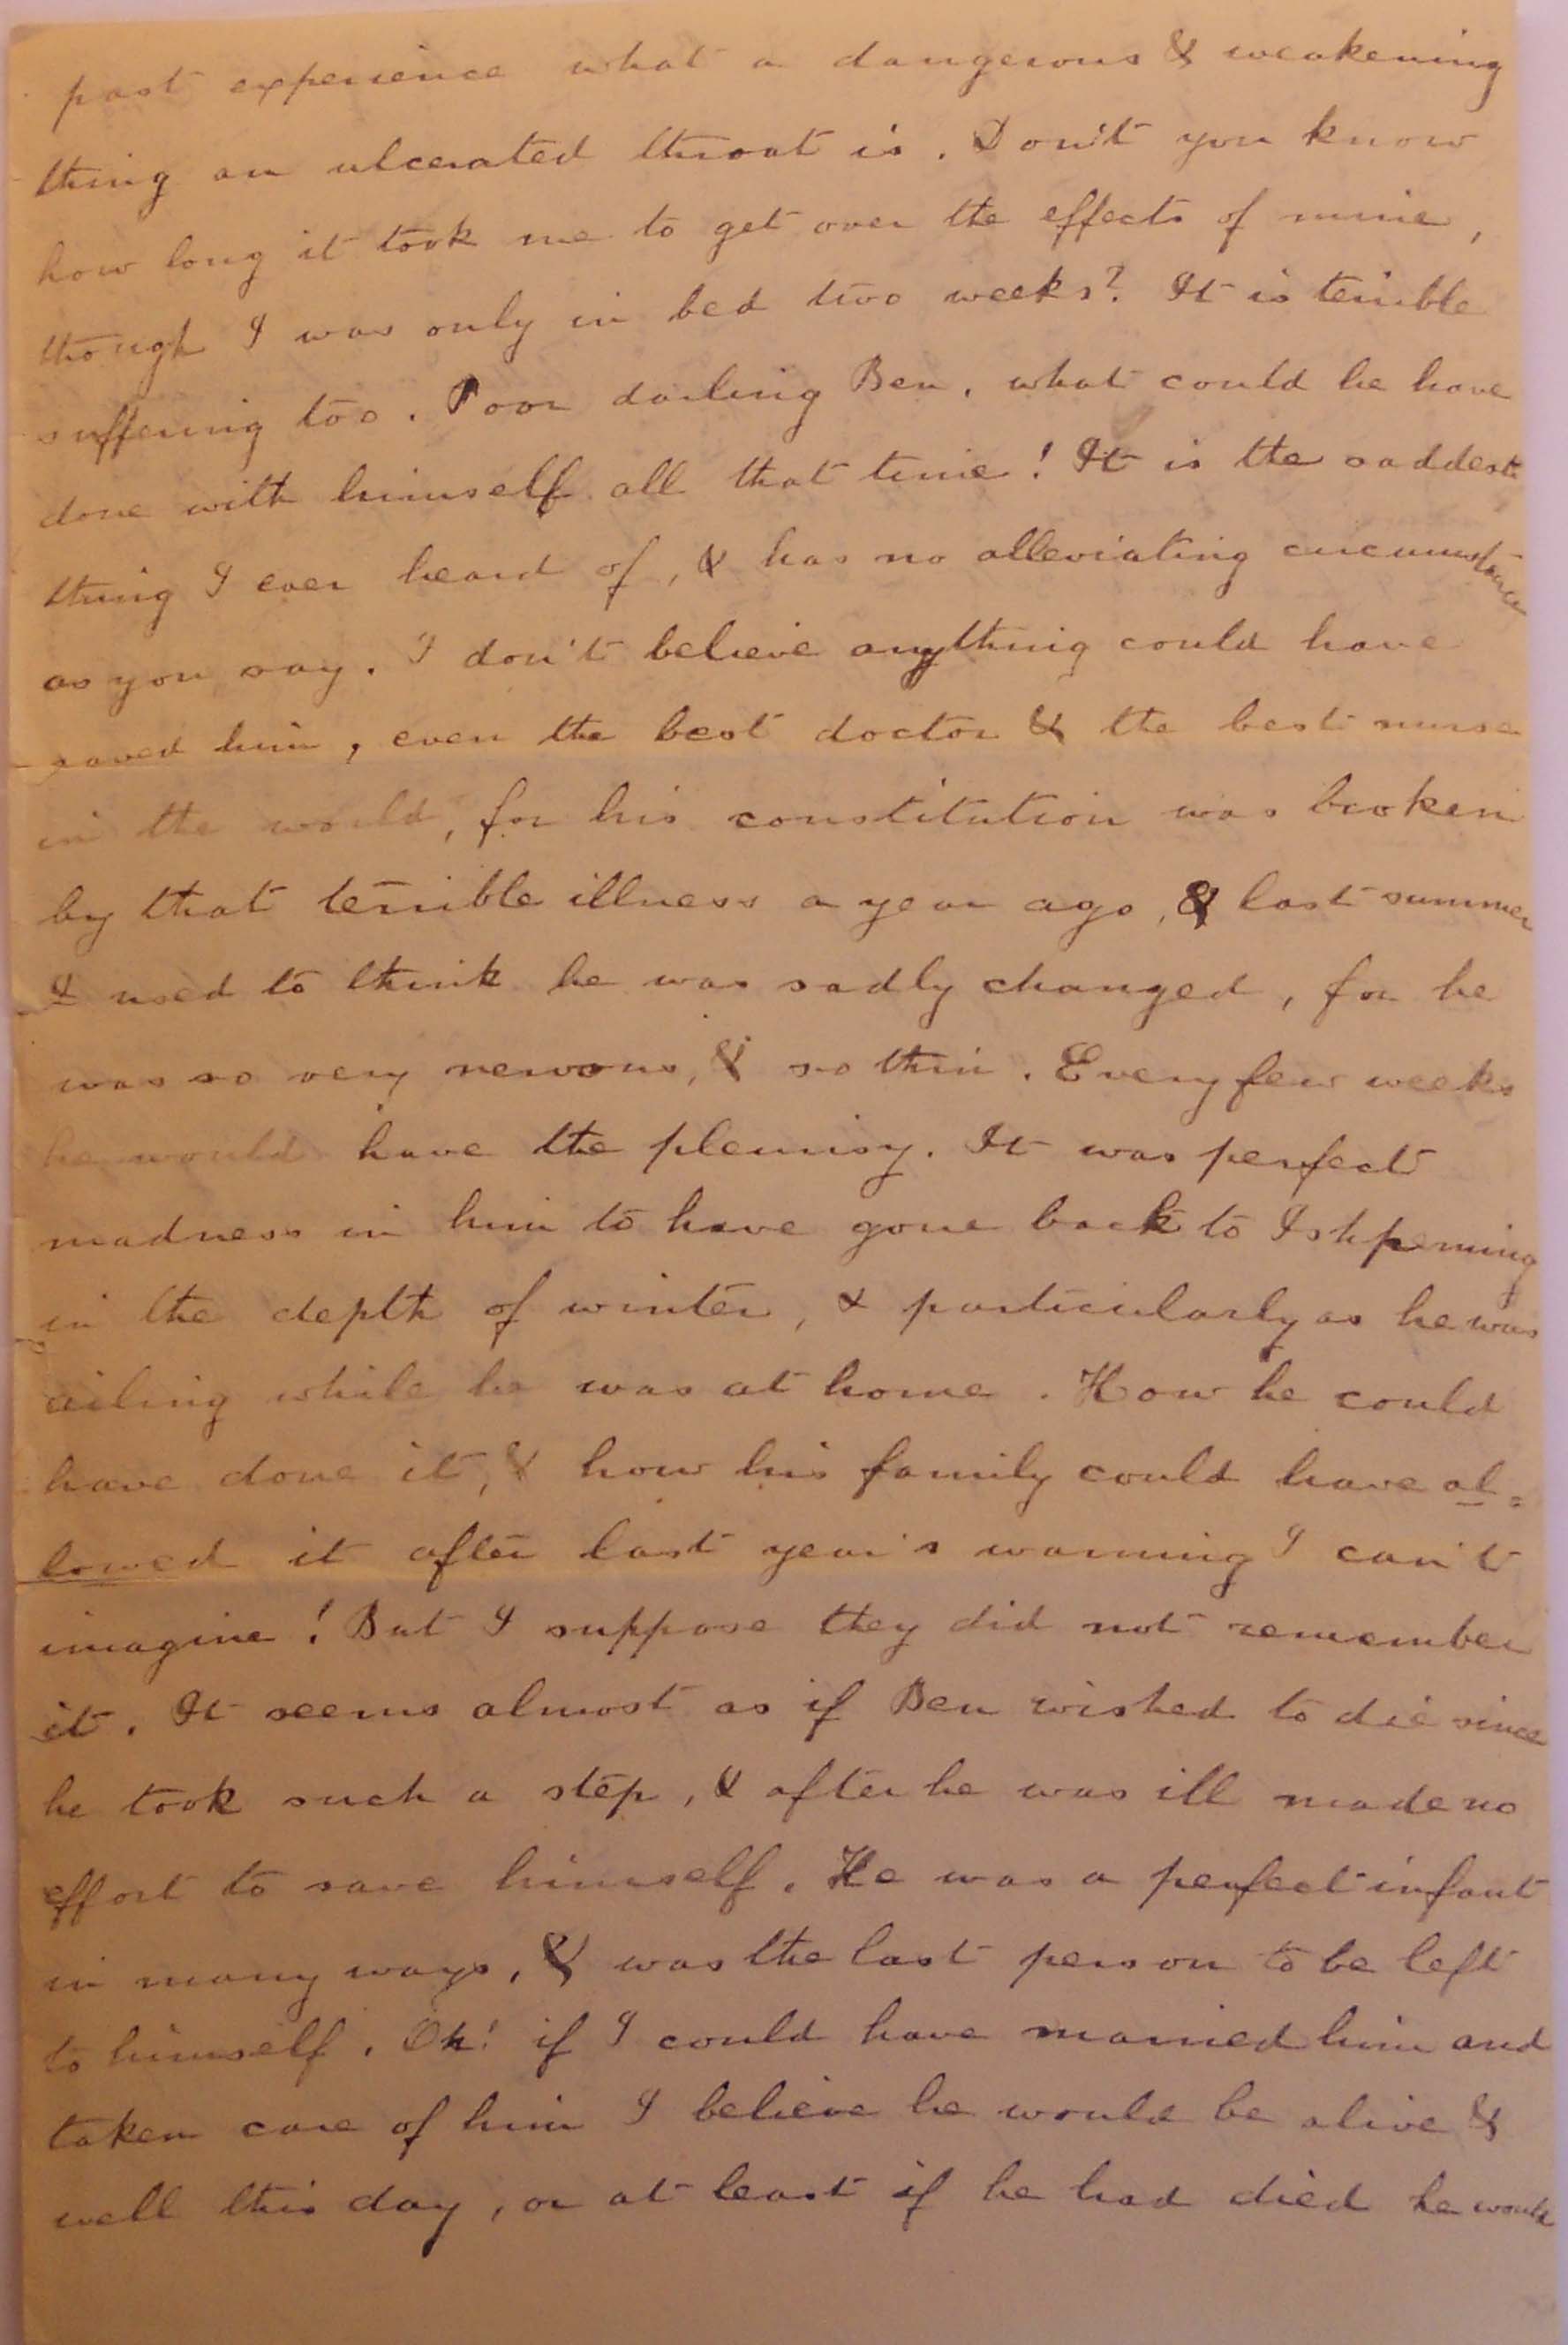 past experience what a dangerous & weakening
thing an ulcerated throat is. Don't you know
how long it took me to get over the effects of mine,
though I was only in bed two weeks? It is terrible
suffering too. Poor darling Ben, what could he have
done with himself all that time! It is the saddest
thing I ever heard of, & has no alleviating circumstance
as you say. I don't believe anything could have
saved him, even the best doctor & the best nurse
in the world, for his constitution was broken
by that terrible illness a year ago, & last summer
I used to think he was sadly changed, for he
was so very nervous, & so thin. Every few weeks
he would have the pleurisy. It was perfect
madness in him to have gone back to Ishpeming
in the depth of winter, & particularly as he was
ailing while he was at home. How he could
have done it, & how his family could have al=
lowed it after last year's warning I can't
imagine! But I suppose they did not remember
it. It seems almost as if Ben wished to die since
he took such a step, & after he was ill made no
effort to save himself. He was a perfect infant
in many ways, & was the last person to be left
to himself. Oh! if I could have married him and
taken care of him I believe he would be alive &
well this day, or at least if he had died he would